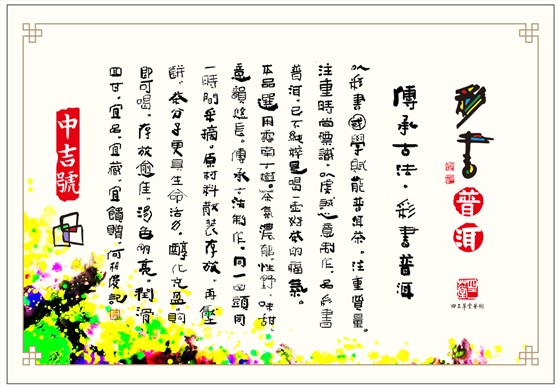 彩書
普洱
四三草堂藝術
傳承古法·彩書普洱
以彩書國學賦能普洱茶。注重質量。
注重時尚標識。以虔誠之意制作。品彩書
普洱。已不純粹是喝一壺好茶的福氣。
本品選用雲南大樹。茶氣濃郁。性野。味甜。
意韻悠長。傳承古法制作。同一山頭同
一時間采摘。原材料散裝存放。再壓
餅。茶分子更具生命活力。醇化充盈。購
即可喝。存放愈佳。湯色明亮。潤滑
回甘。宜品。宜藏。宜饋贈。
中吉號